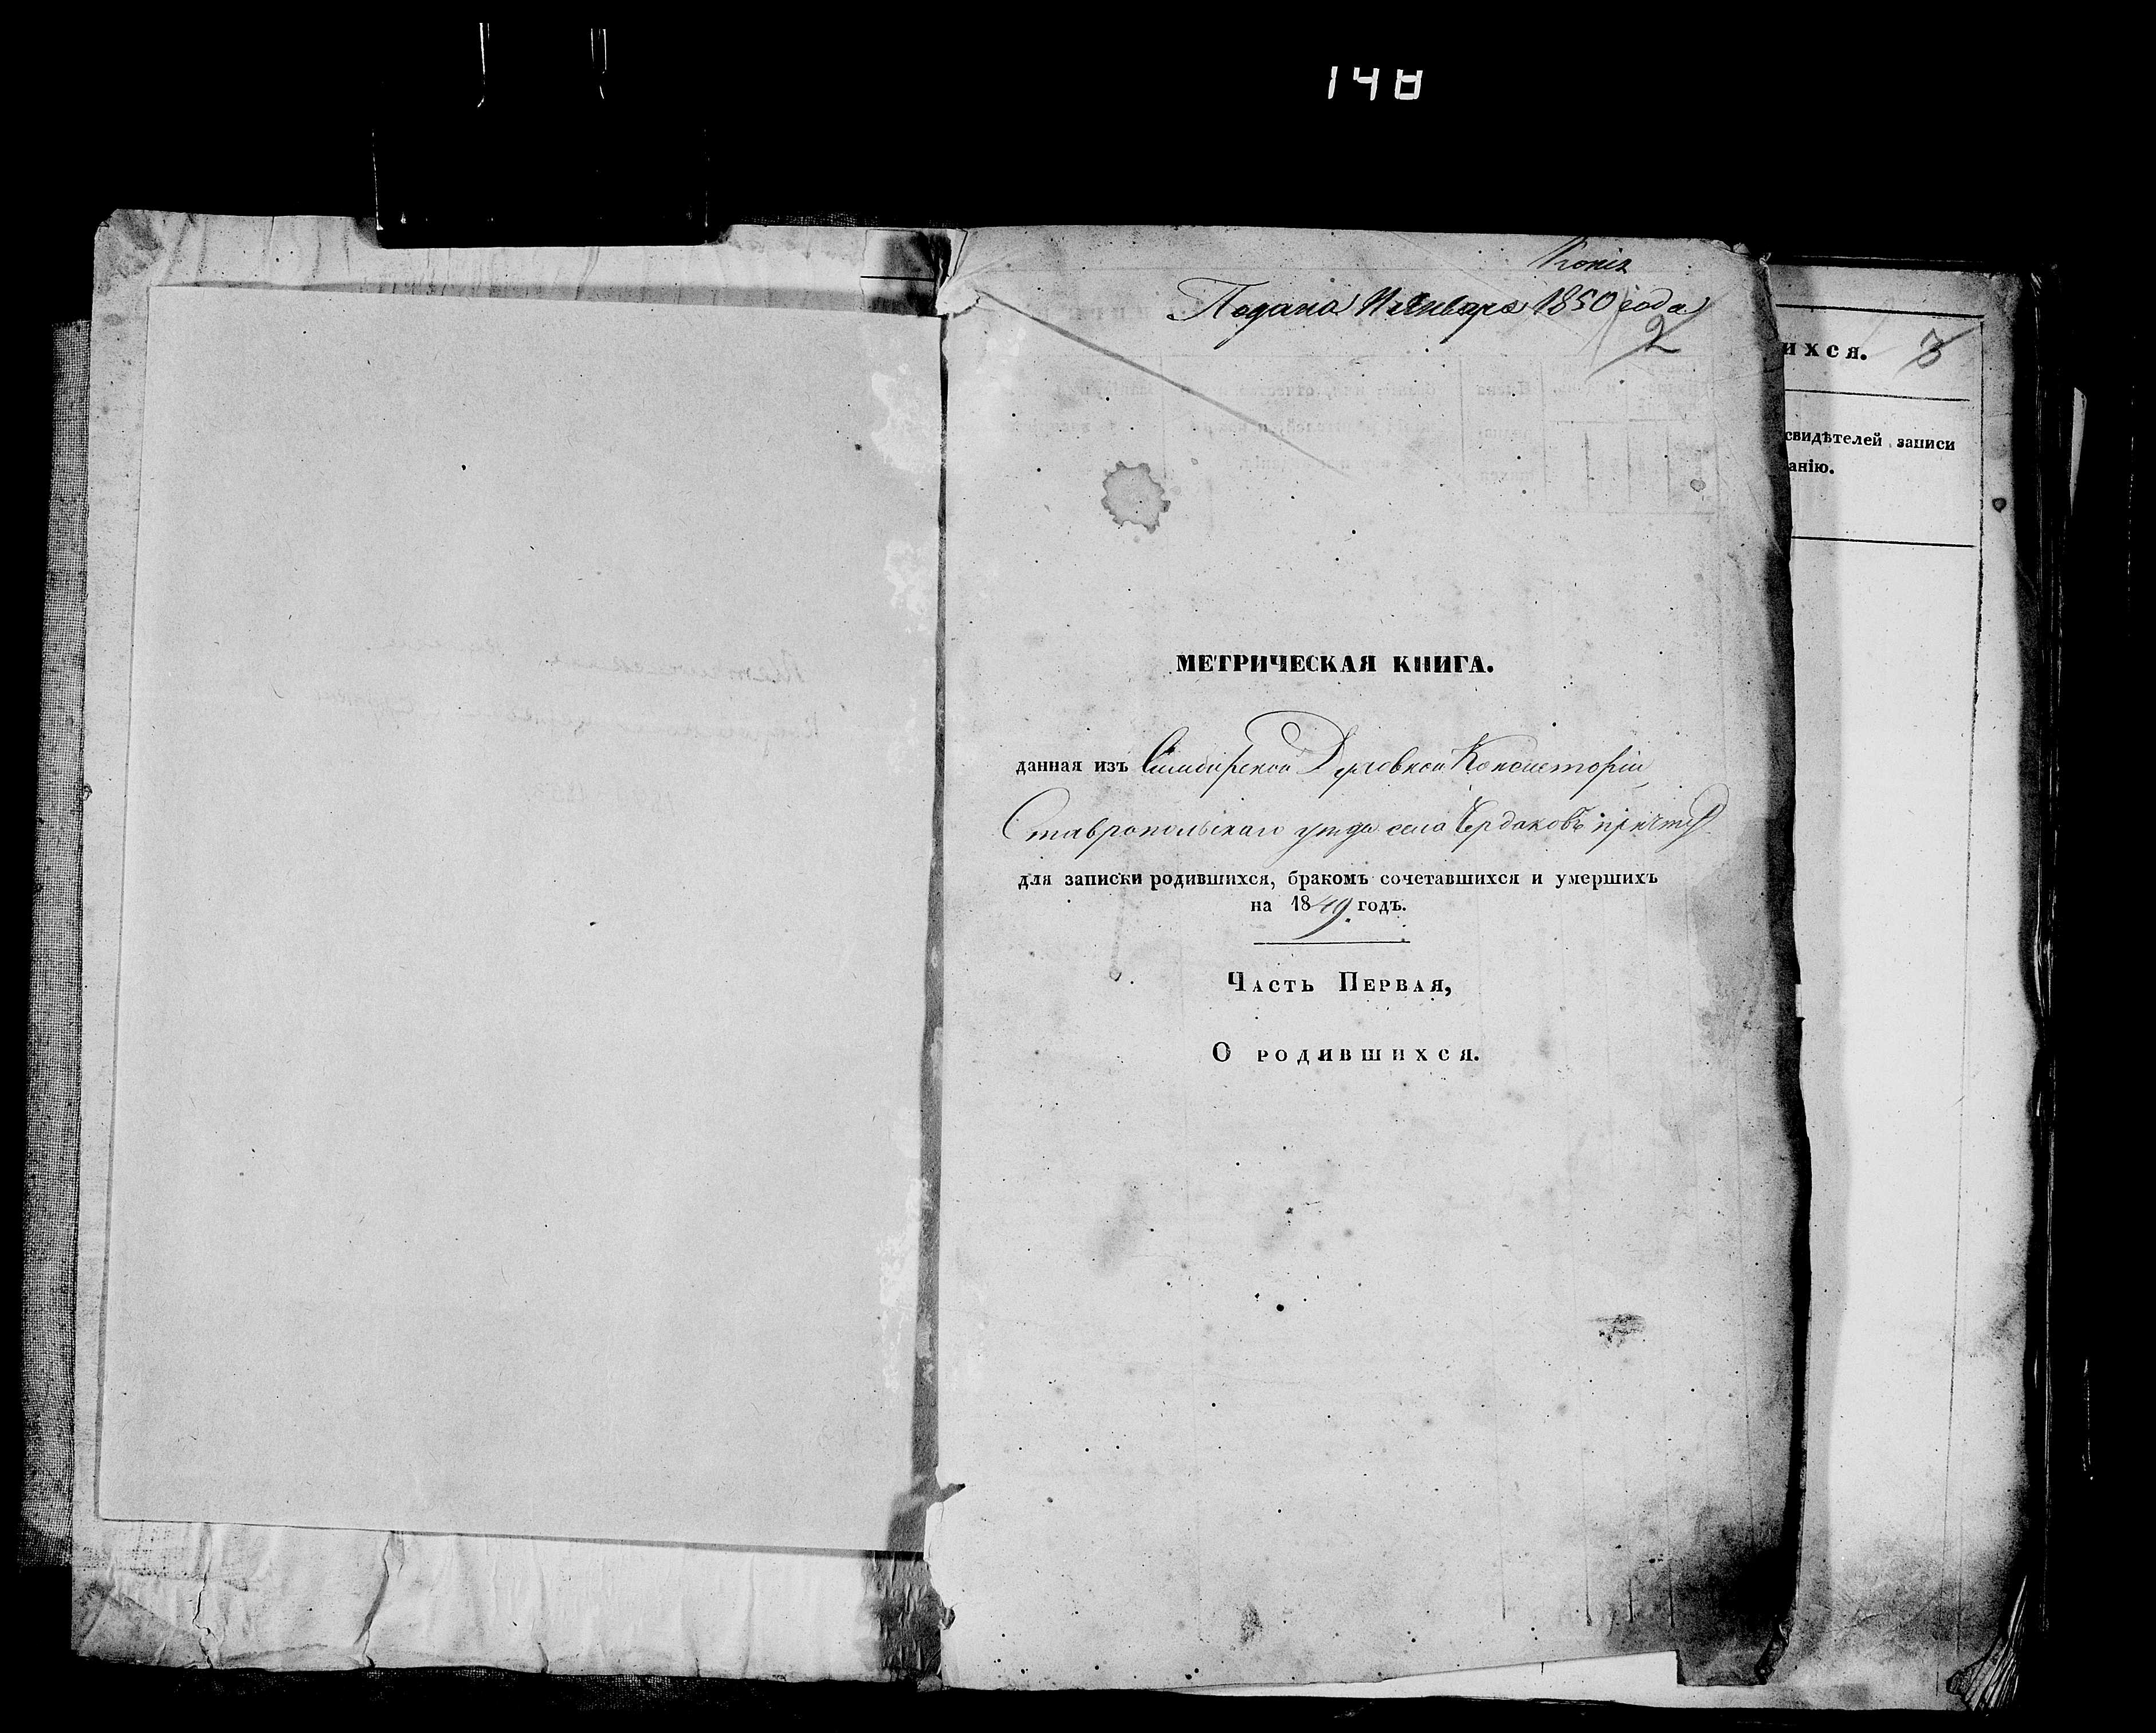 148
Копія
Подана Января 1850 года
2
МЕТРИЧЕСКАЯ КНИГА.
данная изъ Симбирской Духовной Консисторіи
Ставропольскаго уѣзда села Чердаковъ причту
для записки родившихся, бракомъ сочетавшихся и умершихъ
на 1849. годъ.
Часть Первая,
О родившихся.
ихся. 3
свидѣтелей записи
анію.